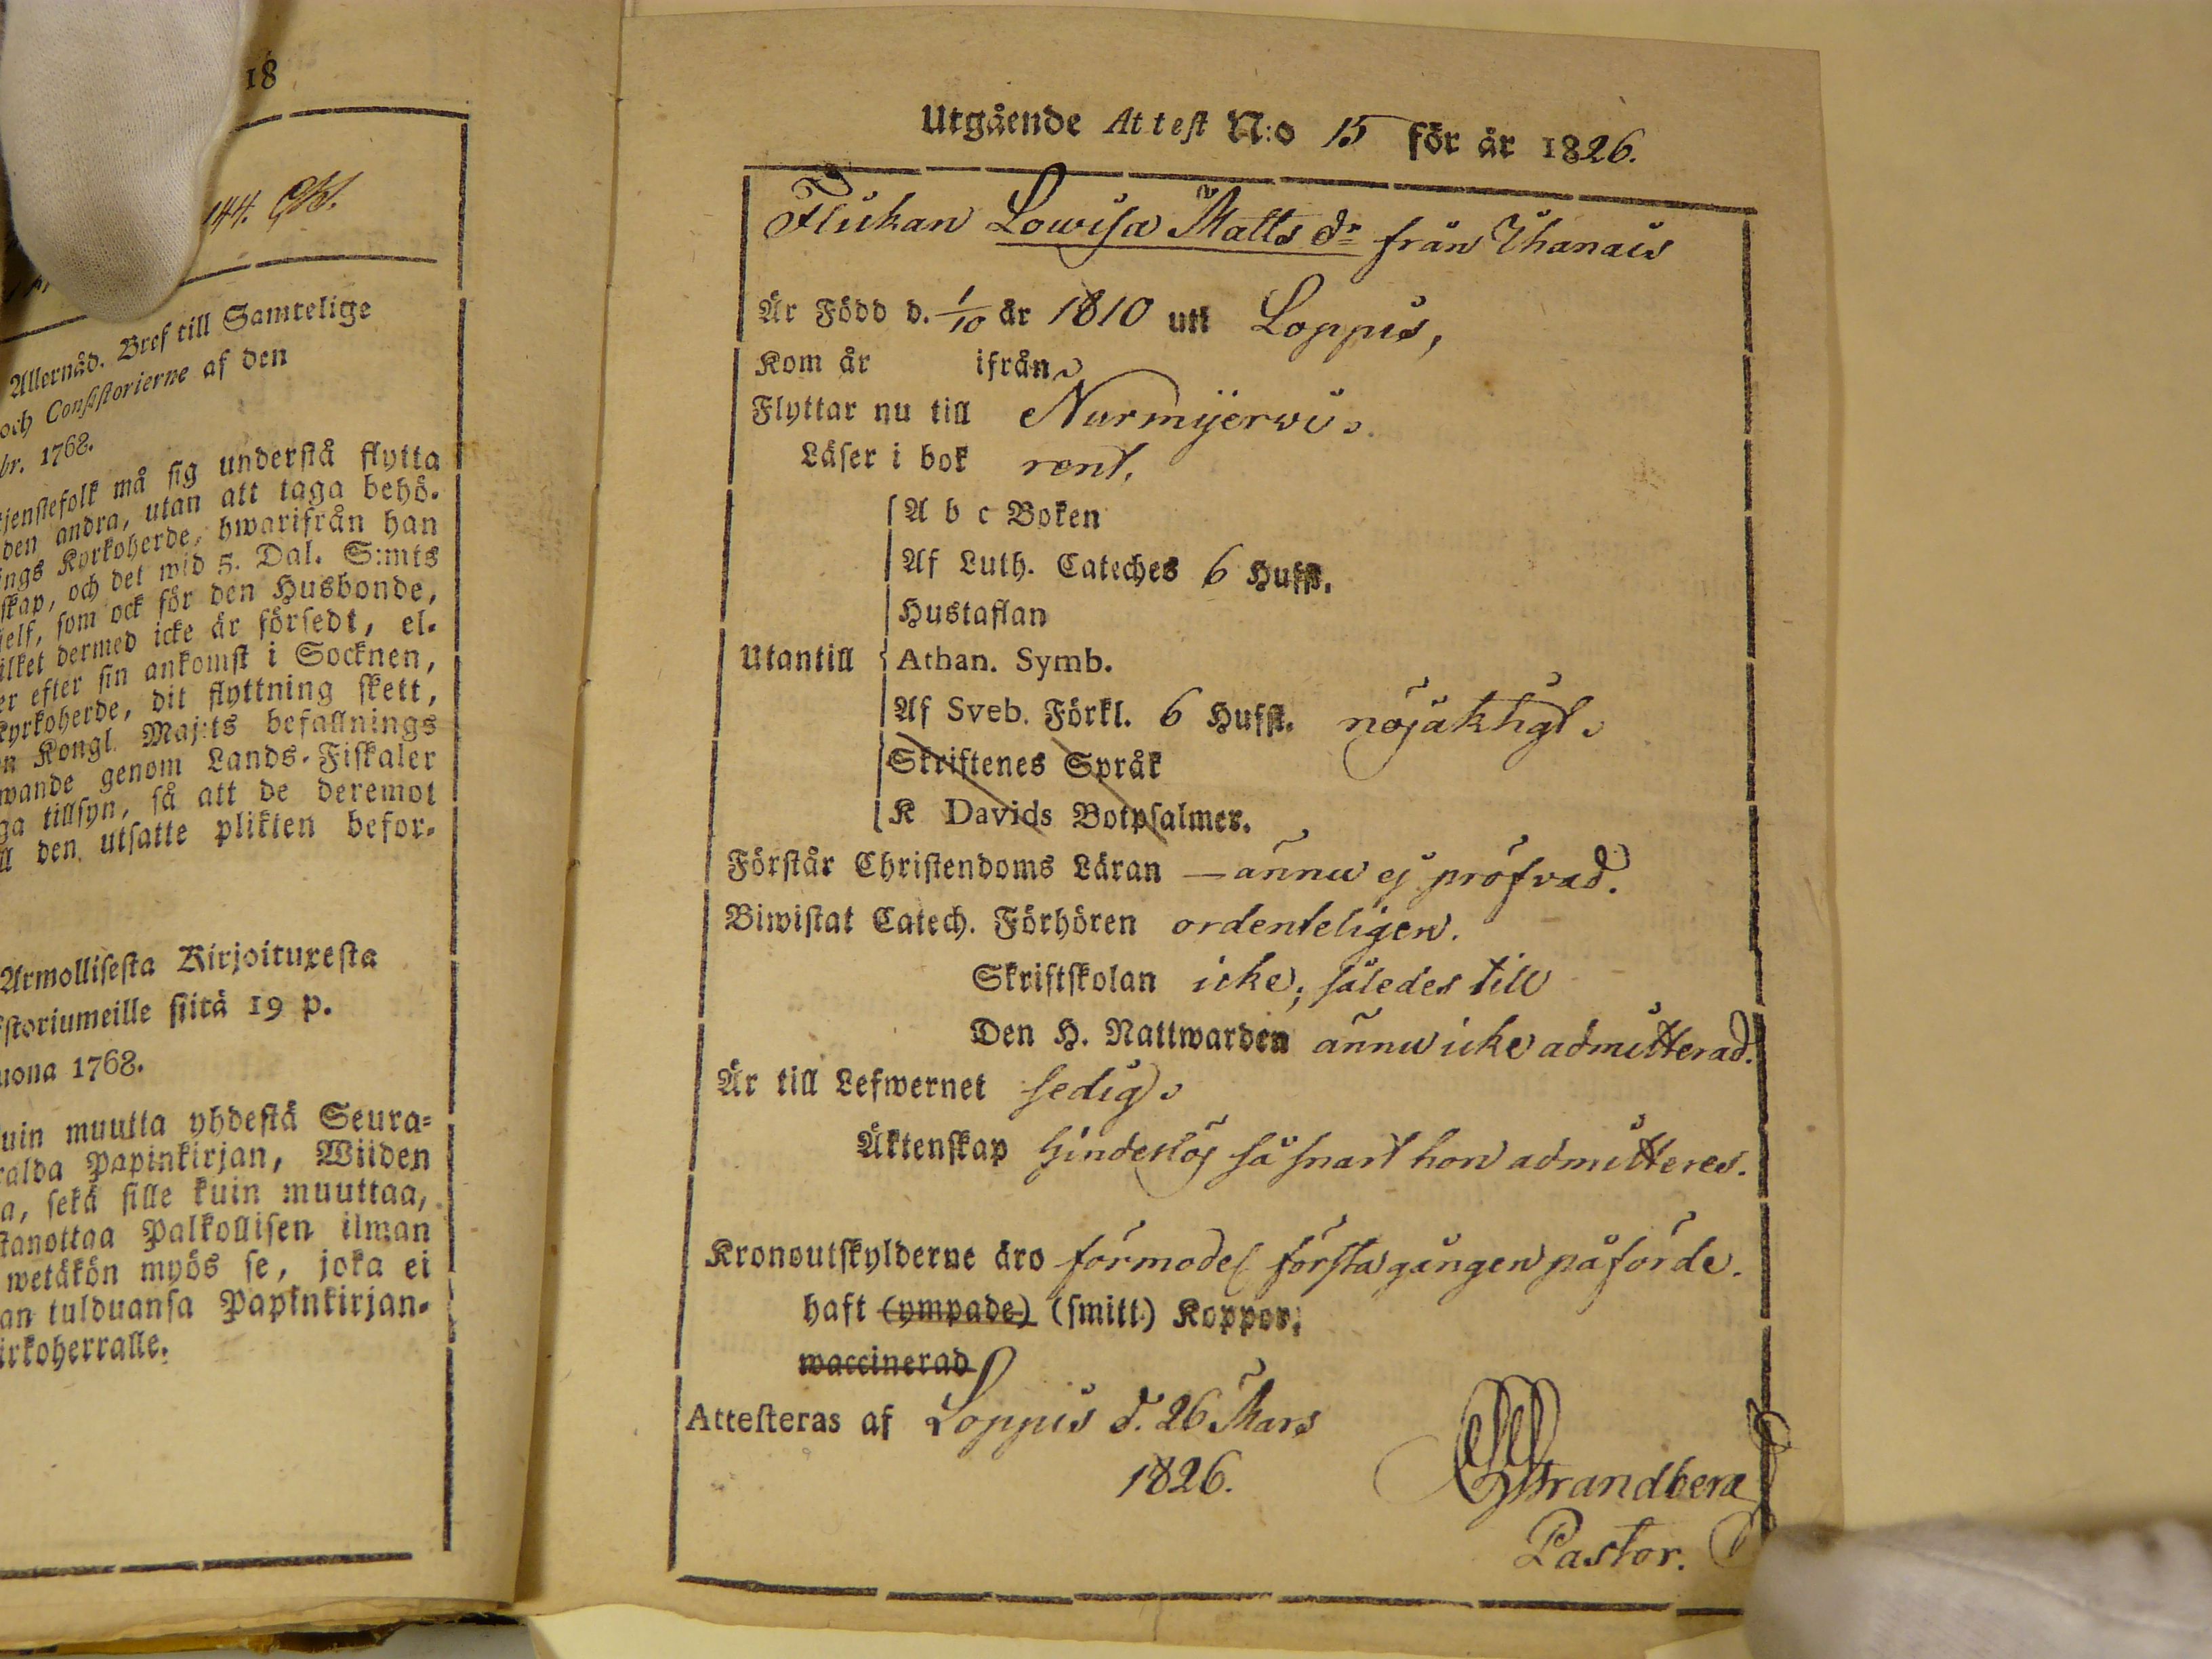 18
144.
Allernåd. Bref till Samtelige
och Consistorierne af den
br. 1768.
tjenstefolk må sig understå flytta
den andra, utan att taga behö-
ings Kyrkoherde, hwarifrån han
skap, och det wid 5. Dal. S:mts
jelf, som ock för den Husbonde,
ilket dermed icke är försedt, el-
er efter sin ankomst i Socknen,
Kyrkoherde, dit flyttning skett,
n Kongl. Maj:ts befallnings
wande genom Lands-Fiskaler
ga tillsyn, så att de deremot
ll den utsatte plikten befor-
Armollisesta Kirjoituxesta
storiumeille siitä 19 p.
uona 1768.
uin muutta yhdestä Seura-
ralda Papinkirjan, Wiiden
a, sekä sille kuin muuttaa,
tanottaa Palkollisen ilman
wetäkön myös se, joka ei
an tulduansa Papinkirjan-
irkoherralle.
Utgående Attest N:o 15 för år 1826.
Flickan Lowisa Matts dr från
Är Född d. 1/10 år 1810 uti Loppis,
Kom år ifrån
Flyttar nu till Nurmijerwi.
Läser i bok rent.
A b c Boken
Af Luth. Cateches 6 Hufst.
Hustaflan
Utantill Athan. Symb.
Af Sveb. Förkl. 6 Hufst. nöjaktigt.
Skriftenes Språk
K Davids Botpsalmer.
Förstår Christendoms Läran — ännu ej pröfvad.
Biwistat Catech. Förhören ordenteligen.
Skriftskolan icke; således till
Den H. Nattwarden ännu icke admitterad.
Är till Lefwernet sedig.
Äktenskap hinderslös så snart hon admitteres.
Kronoutskylderne äro förmodel. första gången påförde.
haft (ympade) (smitt.) Koppor.
waccinerad
Attesteras af Loppis d. 26 Mars
1826.
Strandberg
Pastor.